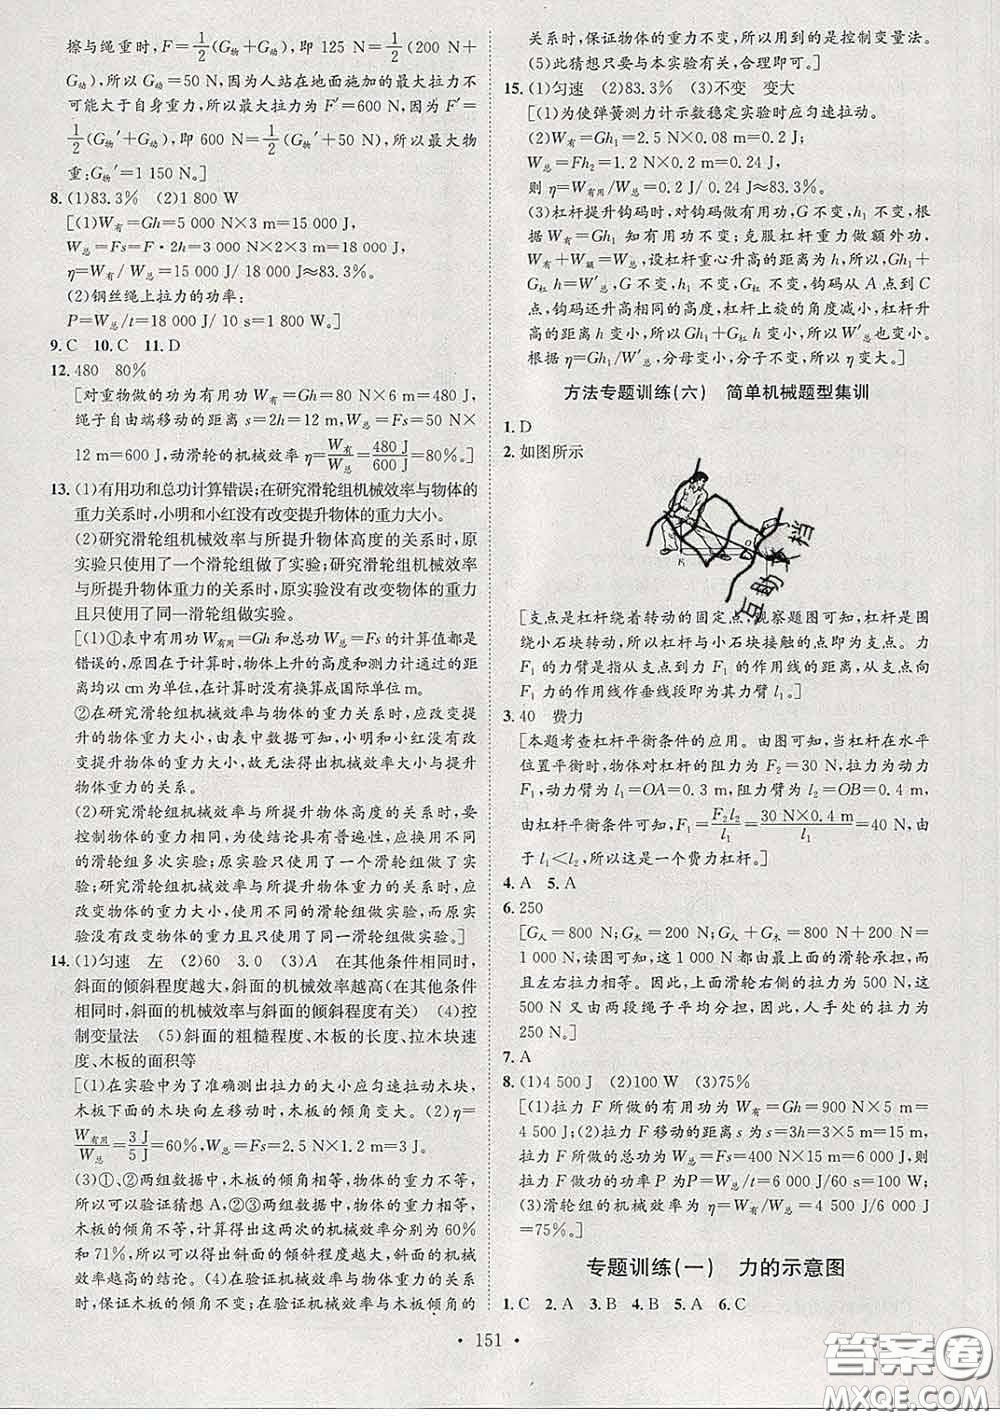 擦与绳重时,F=1/2(G物+G动),即 125 N=1/2(200 N+
G动),所以 G动=50 N,因为人站在地面施加的最大拉力不
可能大于自身重力,所以最大拉力为 F′=600 N,因为 F′=
1/2(G物′+G动),即 600 N=1/2(G物′+50 N),所以最大物
重:G物′=1 150 N。]
8. (1)83.3% (2)1 800 W
[(1)W有=Gh=5 000 N×3 m=15 000 J,
W总=Fs=F·2h=3 000 N×2×3 m=18 000 J,
η=W有/W总=15 000 J/ 18 000 J≈83.3%。
(2)钢丝绳上拉力的功率:
P=W总/t=18 000 J/ 10 s=1 800 W。]
9. C 10. C 11. D
12. 480 80%
[对重物做的功为有用功 W有=Gh=80 N×6 m=480 J,
绳子自由端移动的距离 s=2h=12 m,W总=Fs=50 N×
12 m=600 J,动滑轮的机械效率 η=W有/W总=480 J/600 J=80%。]
13. (1)有用功和总功计算错误;在研究滑轮组机械效率与物体的
重力关系时,小明和小红没有改变提升物体的重力大小。
(2)研究滑轮组机械效率与所提升物体高度的关系时,原
实验只使用了一个滑轮组做了实验;研究滑轮组机械效率
与所提升物体重力的关系时,原实验没有改变物体的重力
且只使用了同一滑轮组做实验。
[(1)①表中有用功 W有用=Gh 和总功 W总=Fs 的计算值都是
错误的,原因在于计算时,物体上升的高度和测力计通过的距
离均以 cm 为单位,在计算时没有换算成国际单位 m。
②在研究滑轮组机械效率与物体的重力关系时,应改变提
升的物体重力大小,由表中数据可知,小明和小红都没有改
变提升物体的重力大小,故无法得出机械效率大小与提升
物体重力的关系。
(2)研究滑轮组机械效率与所提升物体高度的关系时,要
控制物体的重力相同,为使结论具有普遍性,应换用不同
的滑轮组多次实验;原实验只使用了一个滑轮组做了实
验;研究滑轮组机械效率与所提升物体重力的关系时,应
改变物体的重力大小,使用不同的滑轮组做实验,而原实
验没有改变物体的重力大小,且只使用了同一滑轮组做实验。]
14. (1)匀速 左 (2)60 3.0 (3)A 在其他条件相同时,
斜面的倾斜程度越大,斜面的机械效率越高(在其他条件
相同时,斜面的机械效率与斜面的倾斜程度有关) (4)控
制变量法 (5)斜面的粗糙程度、木板的长度、拉木块速
度、木板的面积等
[(1)在实验中为了准确测出拉力的大小应匀速拉动木块,
木板下面的木块向左移动时,木板的倾角变大。(2)η=
W有用/W总=3 J/5 J=60%,W总=Fs=2.5 N×1.2 m=3 J。
(3)①、②两组数据中,木板的倾角相等,物体的重力不相
等,所以可以验证猜想 A,②③两组数据中,物体的重力相等,
木板的倾角不等,计算得出这两次的机械效率分别为 60%
和 71%,所以可以得出斜面的倾斜程度越大,斜面的机械效
率越高的结论。(4)在验证机械效率与物体的重力的关系
时,保证木板的倾角不变;在验证机械效率与木板的倾角的
关系时,保证物体的重力不变,所以采用的是控制变量法。
(5)此猜想只要与本实验有关,合理即可。]
15. (1)匀速 (2)83.3% (3)不变 变大
[(1)为使弹簧测力计示数稳定实验时应匀速拉动。
(2)W有=Gh₁=2.5 N×0.08 m=0.2 J;
W总=Fh₂=1.2 N×0.2 m=0.24 J,
则 η=W有用/W总=0.2 J/ 0.24 J≈83.3%。
(3)杠杆提升钩码时,对钩码做有用功,G 不变,h₁ 不变,根
据 W有=Gh₁ 知有用功不变;克服杠杆重力做额外功,
W有+W额=W总,设杠杆重心升高的距离为 h,所以,Gh₁+
G杠 h=W总,G 不变,h₁ 不变,G杠 不变,钩码从 A 点到 C
点,钩码还升高相同的高度,杠杆上旋的角度减小,杠杆升
高的距离 h 变小,所以 Gh₁+G杠 h 变小,所以 W′总也变小。
根据 η=Gh₁/W′总,分母变小,分子不变,所以 η 变大。]
方法专题训练(六) 简单机械题型集训
1. D
2. 如图所示
O
K
互动文档
[支点是杠杆绕着转动的固定点,观察题图可知,杠杆是
围绕小石块转动,所以杠杆与小石块接触的点即为支点。力
F₁ 的力臂是指从支点到力 F₁ 的作用线的距离,从支点向
F₁ 力的作用线作垂线段即为其力臂 l₁。]
3. 40 费力
[本题考查杠杆平衡条件的应用。由图可知,当杠杆在水平
位置平衡时,物体对杠杆的阻力为 F₂=30 N,拉力为动力
F₁,动力臂为 l₁=OA=0.3 m,阻力臂为 l₂=OB=0.4 m,
由杠杆平衡条件可知,F₁=F₂l₂/l₁=30 N×0.4 m/l₁=40 N,由
于 l₁<l₂,所以这是一个费力杠杆。]
4. A 5. A
6. 250
[G人=800 N;G木=200 N;G人+G木=800 N+200 N=
1 000 N,读图可知,这 1 000 N 都由最上面的滑轮承担,
且左右拉力相同。因此,上面滑轮右侧的拉力为 500 N,这
500 N 又由两段绳子平均分担,因此,人手处的拉力为
250 N。]
7. A
8. (1)4 500 J (2)100 W (3)75%
[(1)拉力 F 所做的有用功为 W有=Gh=900 N×5 m=
4 500 J;(2)拉力 F 移动的距离 s 为 s=3h=3×5 m=15 m,
拉力 F 所做的总功为 W总=Fs=400 N×15 m=6 000 J,则
拉力 F 做功的功率 P 为 P=W总/t=6 000 J/60 s=100 W;
(3)滑轮组的机械效率为 η=W有/W总=4 500 J/6 000 J
=75%。]
专题训练(一) 力的示意图
1. C 2. A 3. B 4. B 5. A 6. C
• 151 •
答案圈
MXQE.COM